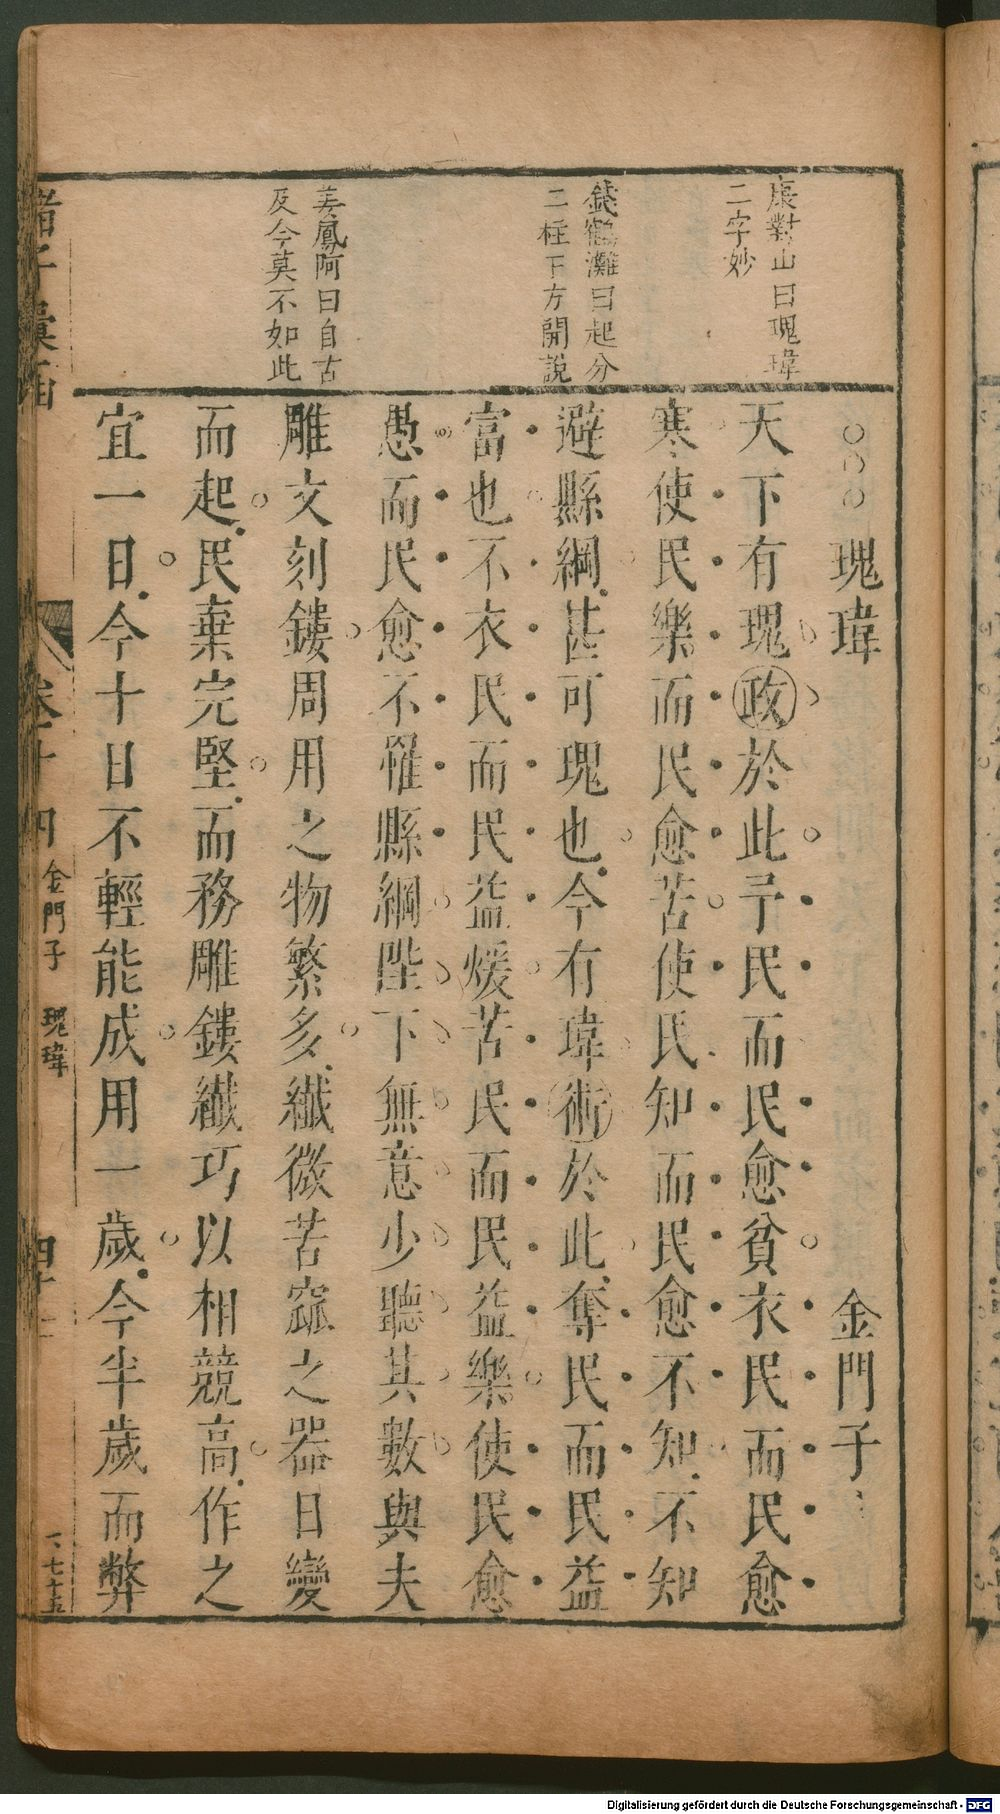 康對山曰瑰瑋
二字妙
錢鶴灘曰起分
二柱下方開說
姜鳳阿曰自古
及今莫不如此
瑰瑋 金門子
天下有瑰政於此予民而民愈貧衣民而民愈
寒使民樂而民愈苦使民知而民愈不知不知
避縣網甚可瑰也今有瑋術於此奪民而民益
富也不衣民而民益煖苦民而民益樂使民愈
愚而民愈不罹縣網陛下無意少聽其數與夫
雕文刻鏤周用之物繁多纖微苦窳之器日變
而起民棄完堅而務雕鏤纖巧以相競高作之
宜一日今十日不輕能成用一歲今半歲而弊
諸子彙函 卷十四 金門子 瑰瑋 四十一
Digitalisierung gefördert durch die Deutsche Forschungsgemeinschaft - DFG